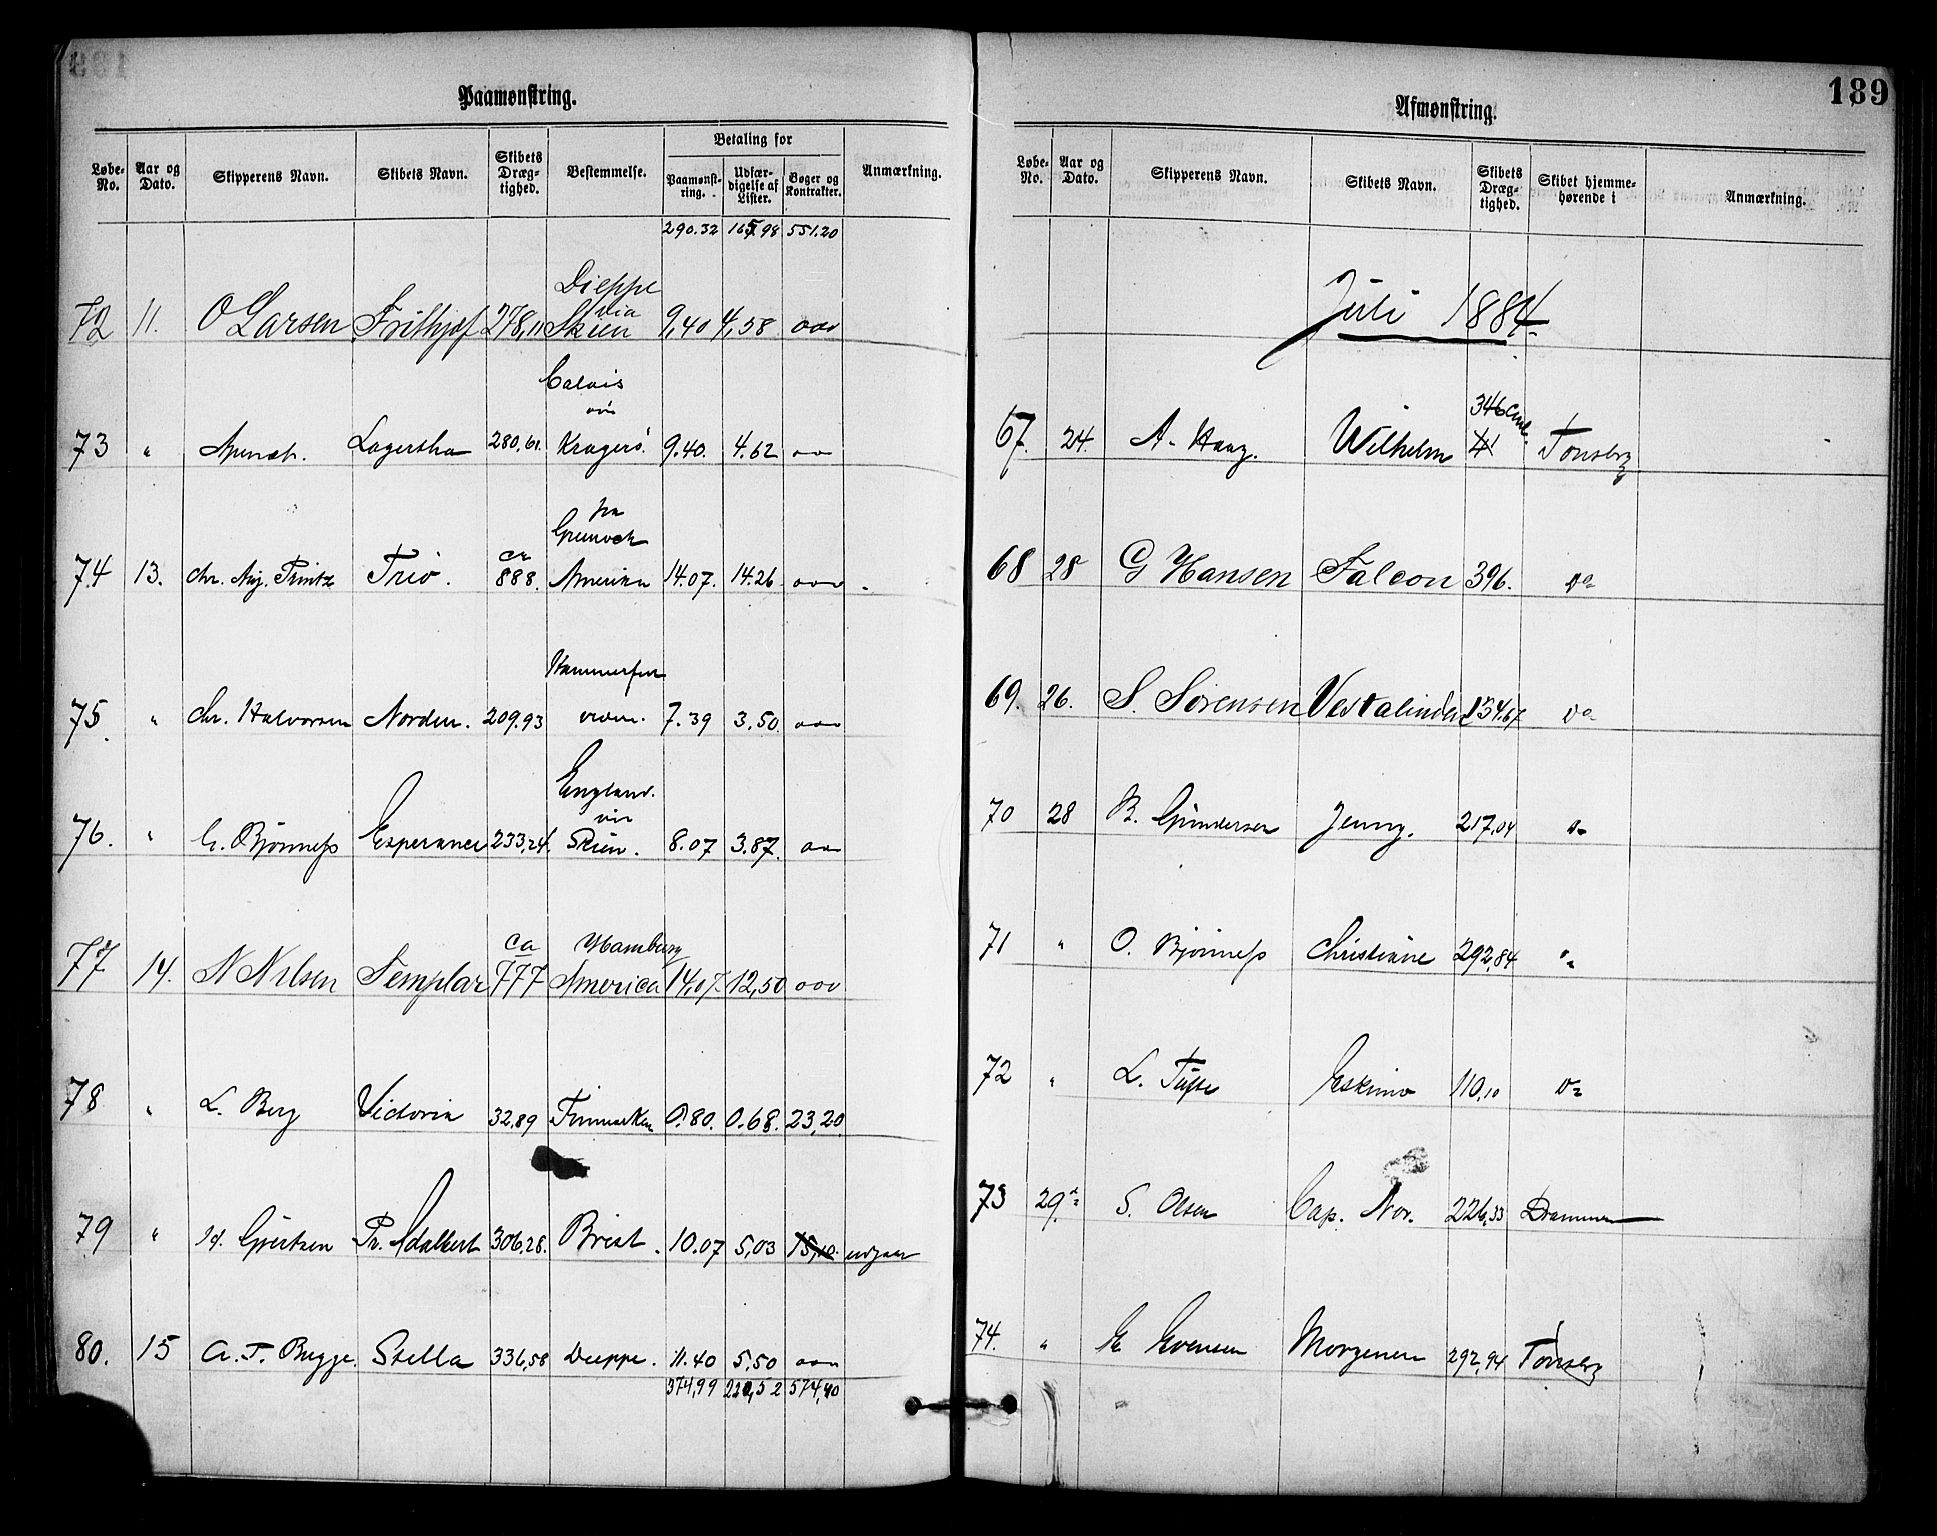 Paamønstring.
Løbe-No. Aar og Dato. Skipperens Navn. Skibets Navn. Skibets Dræg-tighed. Bestemmelse. Betaling for Paamønst-ring. Udfær-digelse af Lister. Bøger og Kontrakter. Anmærkning.
290.32 165.98 551.20
Dieppe
via
72 11. O Larsen Frithjof 278,11 Skien 9,40 4,58
Calais
via
73 " Lagertha 280,61. Kragerö 9.40. 4.62
fra
ca Greenock
74 13. Chr. Aug. Printz Trio. 888. Amerika 14.07. 14.26
Hammerfest
75 " Chr. Halvorsen Norden. 209.93 7.39 3,50
England.
via
76. " C. Bjönness Esperance 233,24. Skien. 8.07 3.87.
ca Hamburg
77 14. N Nilsen Templar 777 America 14,07 12,50
78 " L. Berg Victoria 32,89 Finmarken 0.80. 0.68. 23,20
79 " Pr. Adalbert 306,28. Brest. 10.07 5,03 15,10. udgaar
80. 15 A. T. Bugge. Stella 336,58 Dieppe. 11.40 5,50
374,99 220,52 574,40
189
Afmønstring.
Løbe-No. Aar og Dato. Skipperens Navn. Skibets Navn. Skibets Dræg-tighed. Skibet hjemme-hørende i Anmærkning.
Juli 1884
346
67. 24. A. Haag. Wilhelm Tönsberg
68 28 G Hansen Falcon 396. Do
69. 26. S. Sörensen Vestalinden 234.67 Do
70 28 B. Gundersen Jenny. 217,04 Do
71 " O. Bjönness Christiane 292,84 Do
72 " L. Eskimo 110,10 Do
73 29 S. Olsen Cap. Nor. 226,33 Drammen
74. " E Evensen Morgenen 292,94 Tönsberg